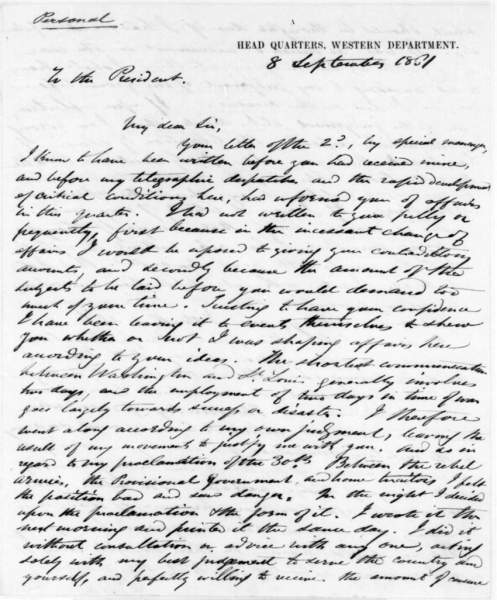 Personal
HEAD QUARTERS, WESTERN DEPARTMENT.
8 September 1861
To the President.
My dear Sir,
Your letter of the 2d, by special messenger,
I know to have been written before you had received mine,
and before my telegraphic despatches and the rapid developments
of critical conditions here, had informed you of affairs
in this quarter. I had not written to you fully or
frequently, first because in the incessant change of
affairs I would be exposed to giving you contradictory
accounts, and secondly because the amount of the
subjects to be laid before you would demand too
much of your time. Trusting to have your confidence
I have been leaving it to events themselves to shew
you whether or not I was shaping affairs here
according to your ideas. The shortest communication
between Washington and St. Louis generally involves
two days, and the employment of two days in time of war
goes largely towards success or disaster. I therefore
went along according to my own judgment, leaving the
result of my movements to justify me with you. And so in
regard to my proclamation of the 30th. Between the rebel
armies, the Provisional Government, and home traitors I felt
the position bad and saw danger. In the night I decided
upon the proclamation & the form of it. I wrote it the
next morning and printed it the same day. I did it
without consultation or advice with any one, acting
solely with my best judgement to serve the country and
yourself, and perfectly willing to receive the amount of censure